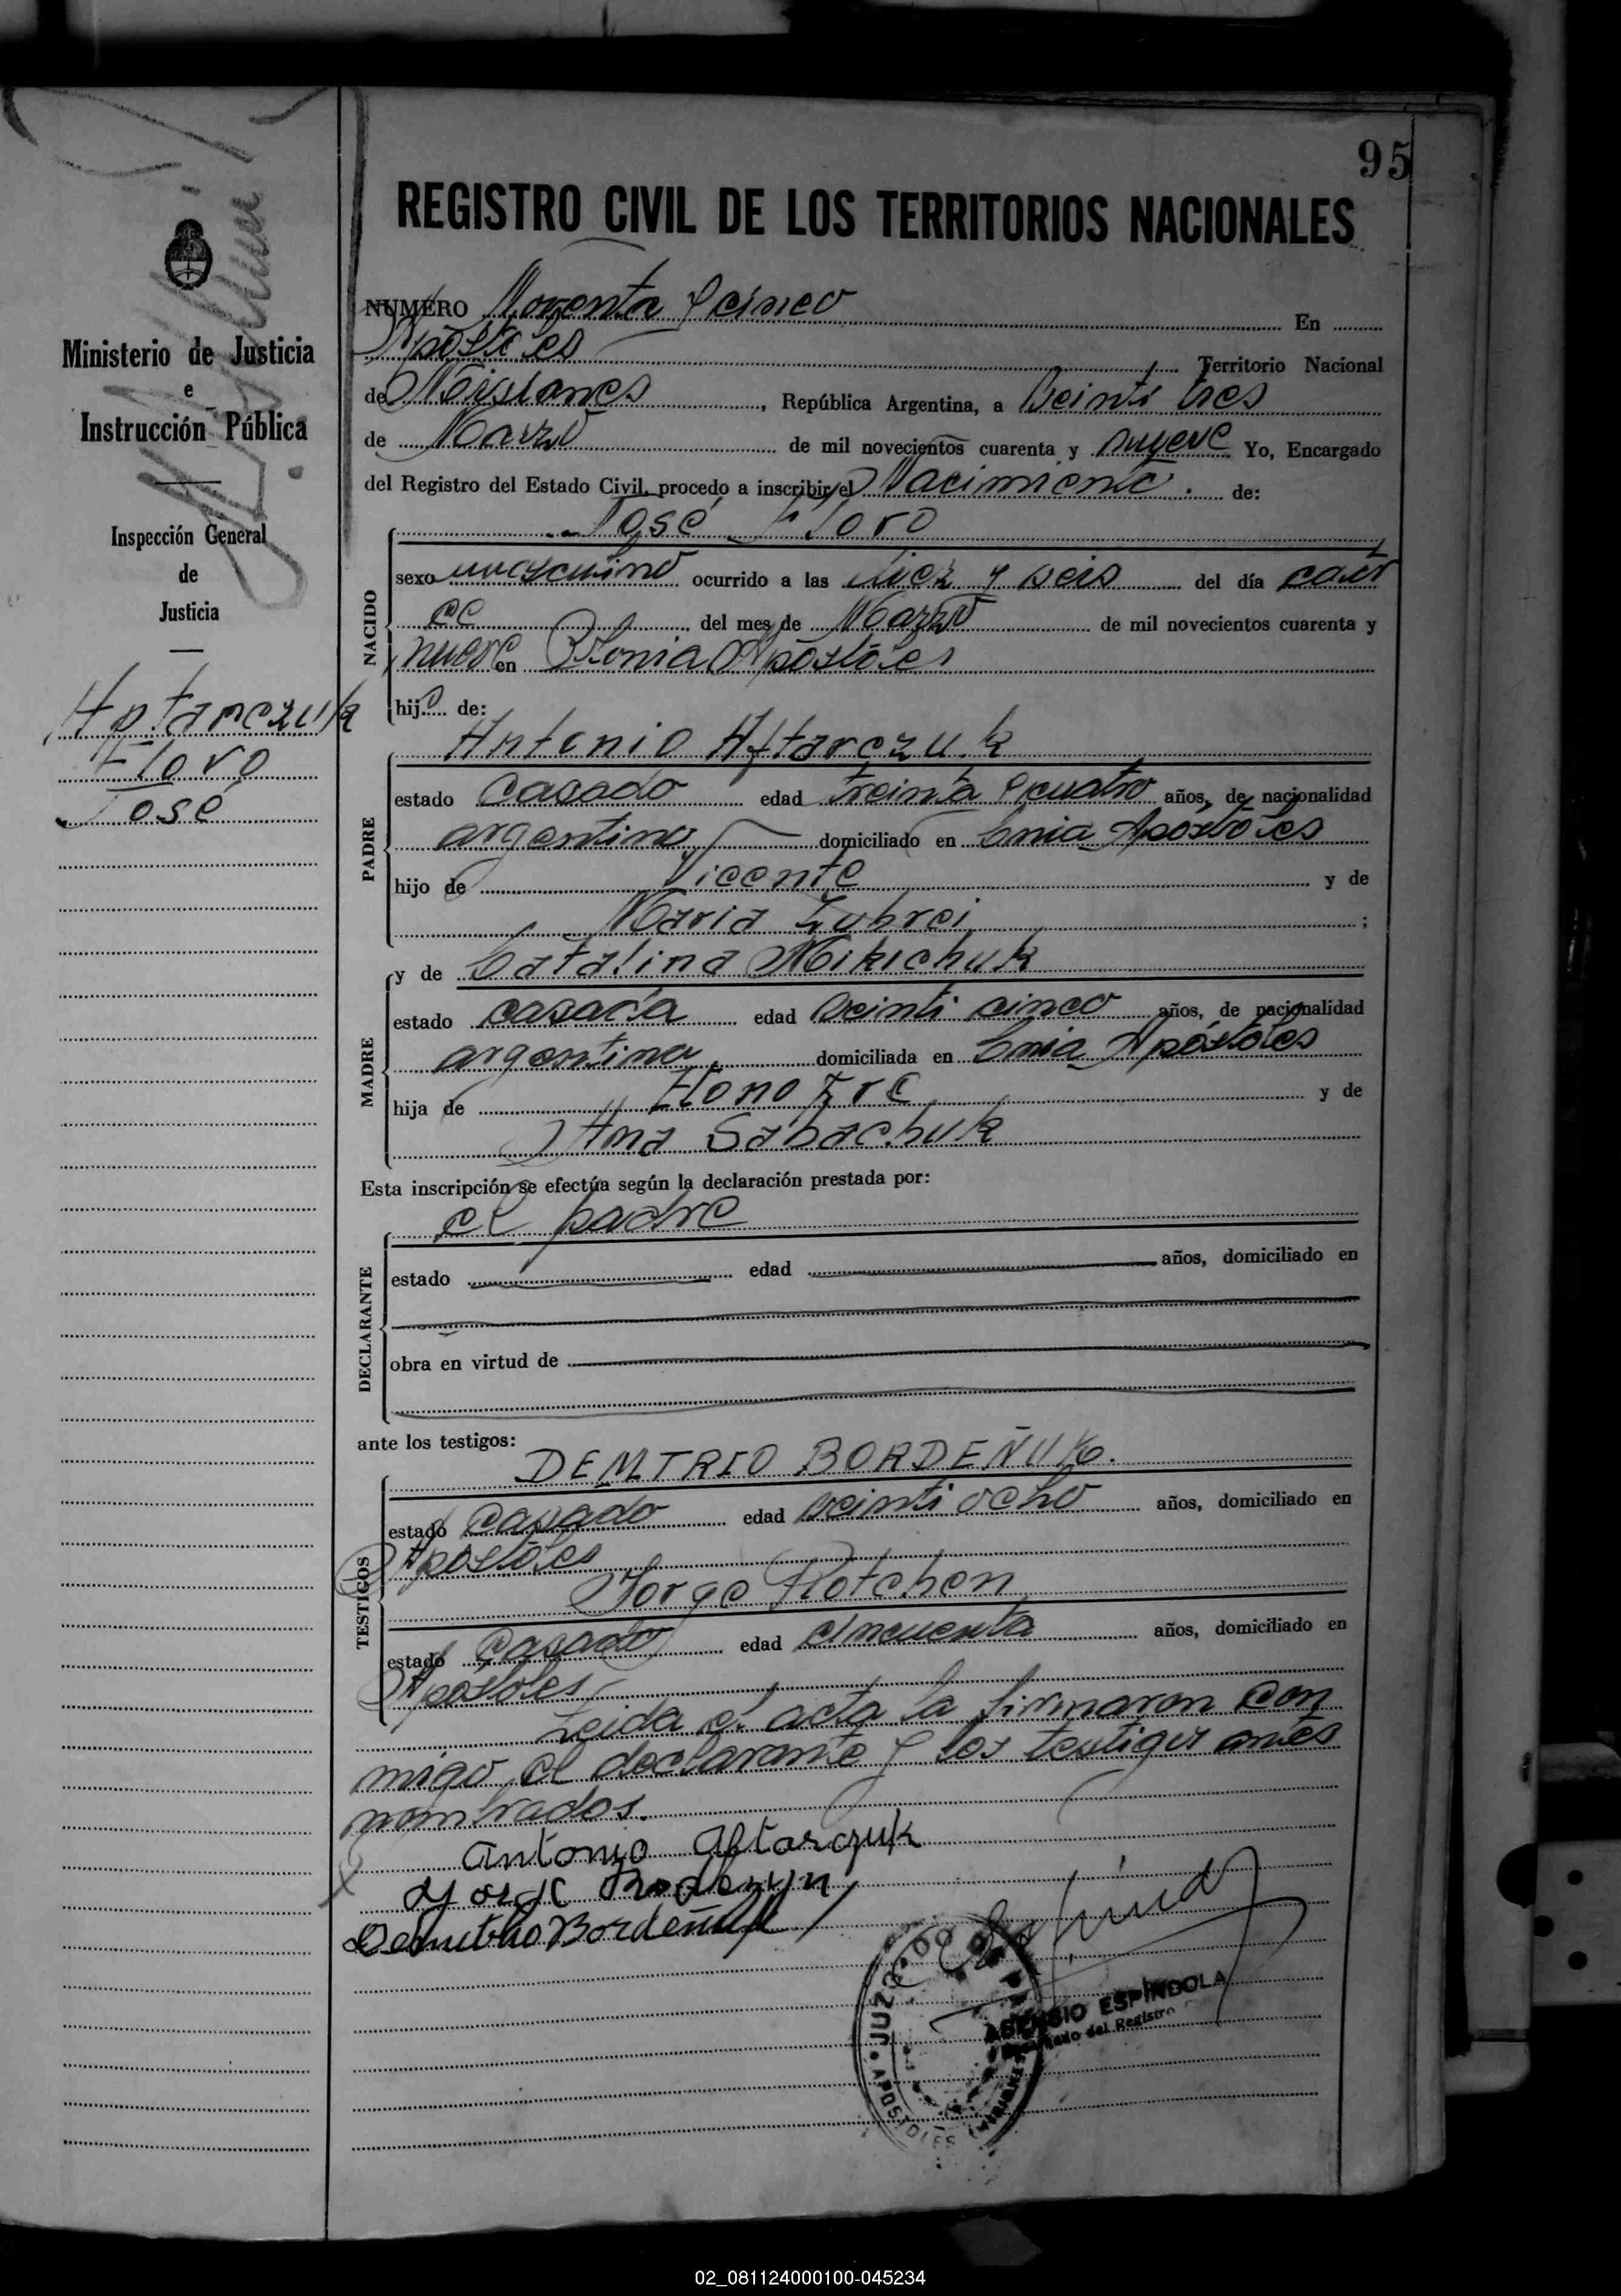 95
REGISTRO CIVIL DE LOS TERRITORIOS NACIONALES
Ministerio de Justicia
e
Instrucción Pública
Inspección General
de
Justicia
Aptarczuk
Floro
José
NUMERO Noventa y cinco En
Apóstoles Territorio Nacional
de Misiones, República Argentina, a Veinti tres
de Marzo de mil novecientos cuarenta y nueve Yo, Encargado
del Registro del Estado Civil, procedo a inscribir el Nacimiento de:
José Floro
NACIDO
sexo masculino ocurrido a las diez y seis del día cator
ce del mes de Marzo de mil novecientos cuarenta y
nueve en Colonia Apóstoles
hijo de:
Antonio Aftarczuk
PADRE
estado Casado edad treinta y cuatro años, de nacionalidad
argentino domiciliado en Cnia Apóstoles
hijo de Vicente y de
Maria Zubrei ;
y de Catalina Mikichuk
MADRE
estado casada edad veinti cinco años, de nacionalidad
argentina domiciliada en Cnia Apóstoles
hija de y de
Ana Sabachuk
Esta inscripción se efectúa según la declaración prestada por:
el padre
DECLARANTE
estado edad años, domiciliado en
obra en virtud de
ante los testigos:
DEMTRIO BORDEÑUK.
TESTIGOS
estado Casado edad veinti ocho años, domiciliado en
Apóstoles
Jorge Rotchen
estado Casado edad cincuenta años, domiciliado en
Apóstoles
Leida el acta la firmaron con
migo el declarante y los testigos antes
nombrados.
Antonio Aftarczuk
Jorge
Demetrio Bordeñuk
JUZGADO DE
APOSTOLES
MISIONES
ASENSIO ESPÍNDOLA
Encargado del Registro
02_081124000100-045234